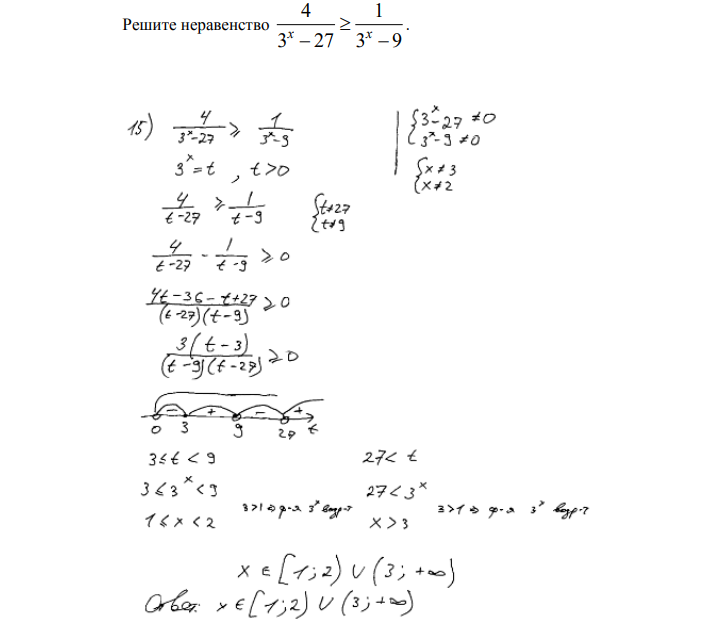 Решите неравенство 4/(3^x − 27) ≥ 1/(3^x − 9).
15) 4/(3^x−27) ≥ 1/(3^x−9)
3^x = t , t>0
{3^x−27 ≠0
{3^x−9 ≠0
{x≠3
{x≠2
4/(t−27) ≥ 1/(t−9) {t≠27
{t≠9
4/(t−27) − 1/(t−9) ≥ 0
(4t−36−t+27)/((t−27)(t−9)) ≥ 0
3(t−3)/((t−9)(t−27)) ≥ 0
− + − +
0 3 9 27 t
3≤t<9 27< t
3≤3^x<9 27<3^x
3>1 ⇒ ф-я 3^x возр-т 3>1 ⇒ ф-я 3^x возр-т
1≤x<2 x>3
x ∈ [1;2) ∪ (3; +∞)
Ответ: x ∈ [1;2) ∪ (3; +∞)